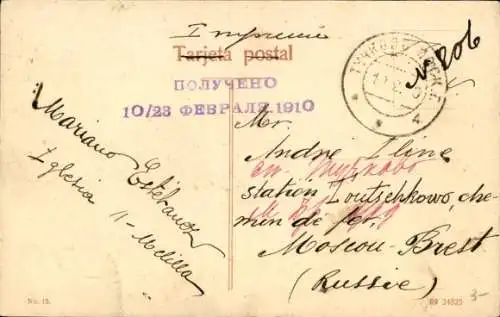 Imprimé
Tarjeta postal
ПОЛУЧЕНО
10/23 ФЕВРАЛЯ 1910
N 806
ТУЧКОВО МОСК. Г.
Mariano Estébanez
Yglesia 11 - Melilla
Mr
Andre Iline
ст. Тучково
station Toutschkowo, che-
min de fer,
Moscou-Brest
(Russie)
No. 15.
89 24525
3-